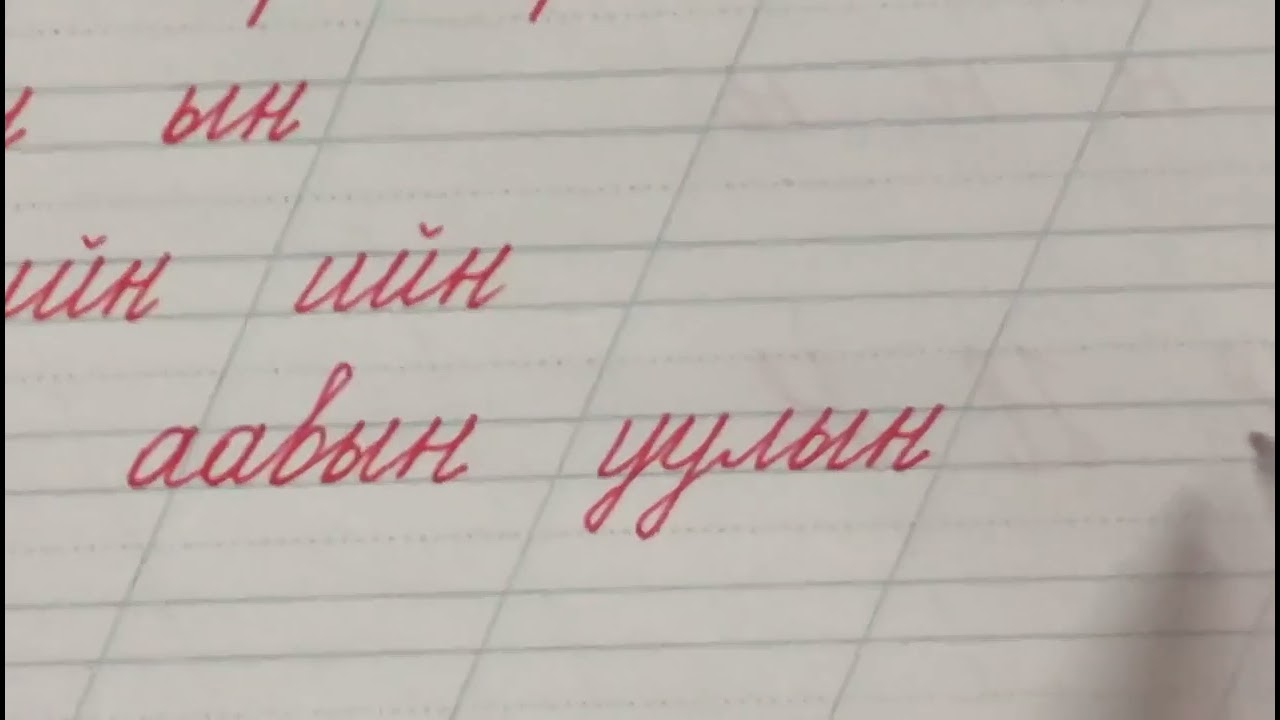 ын
ийн ийн
аавын уулын